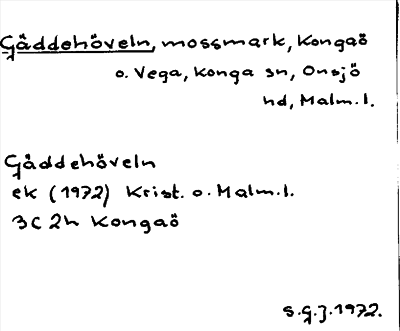 Gåddehöveln, mossmark, Kongaö
o. Vega, Konga sn, Onsjö
hd, Malm. l.
Gåddehöveln
ek (1972) Krist. o. Malm. l.
3C 2h Kongaö
S.G.J. 1972.